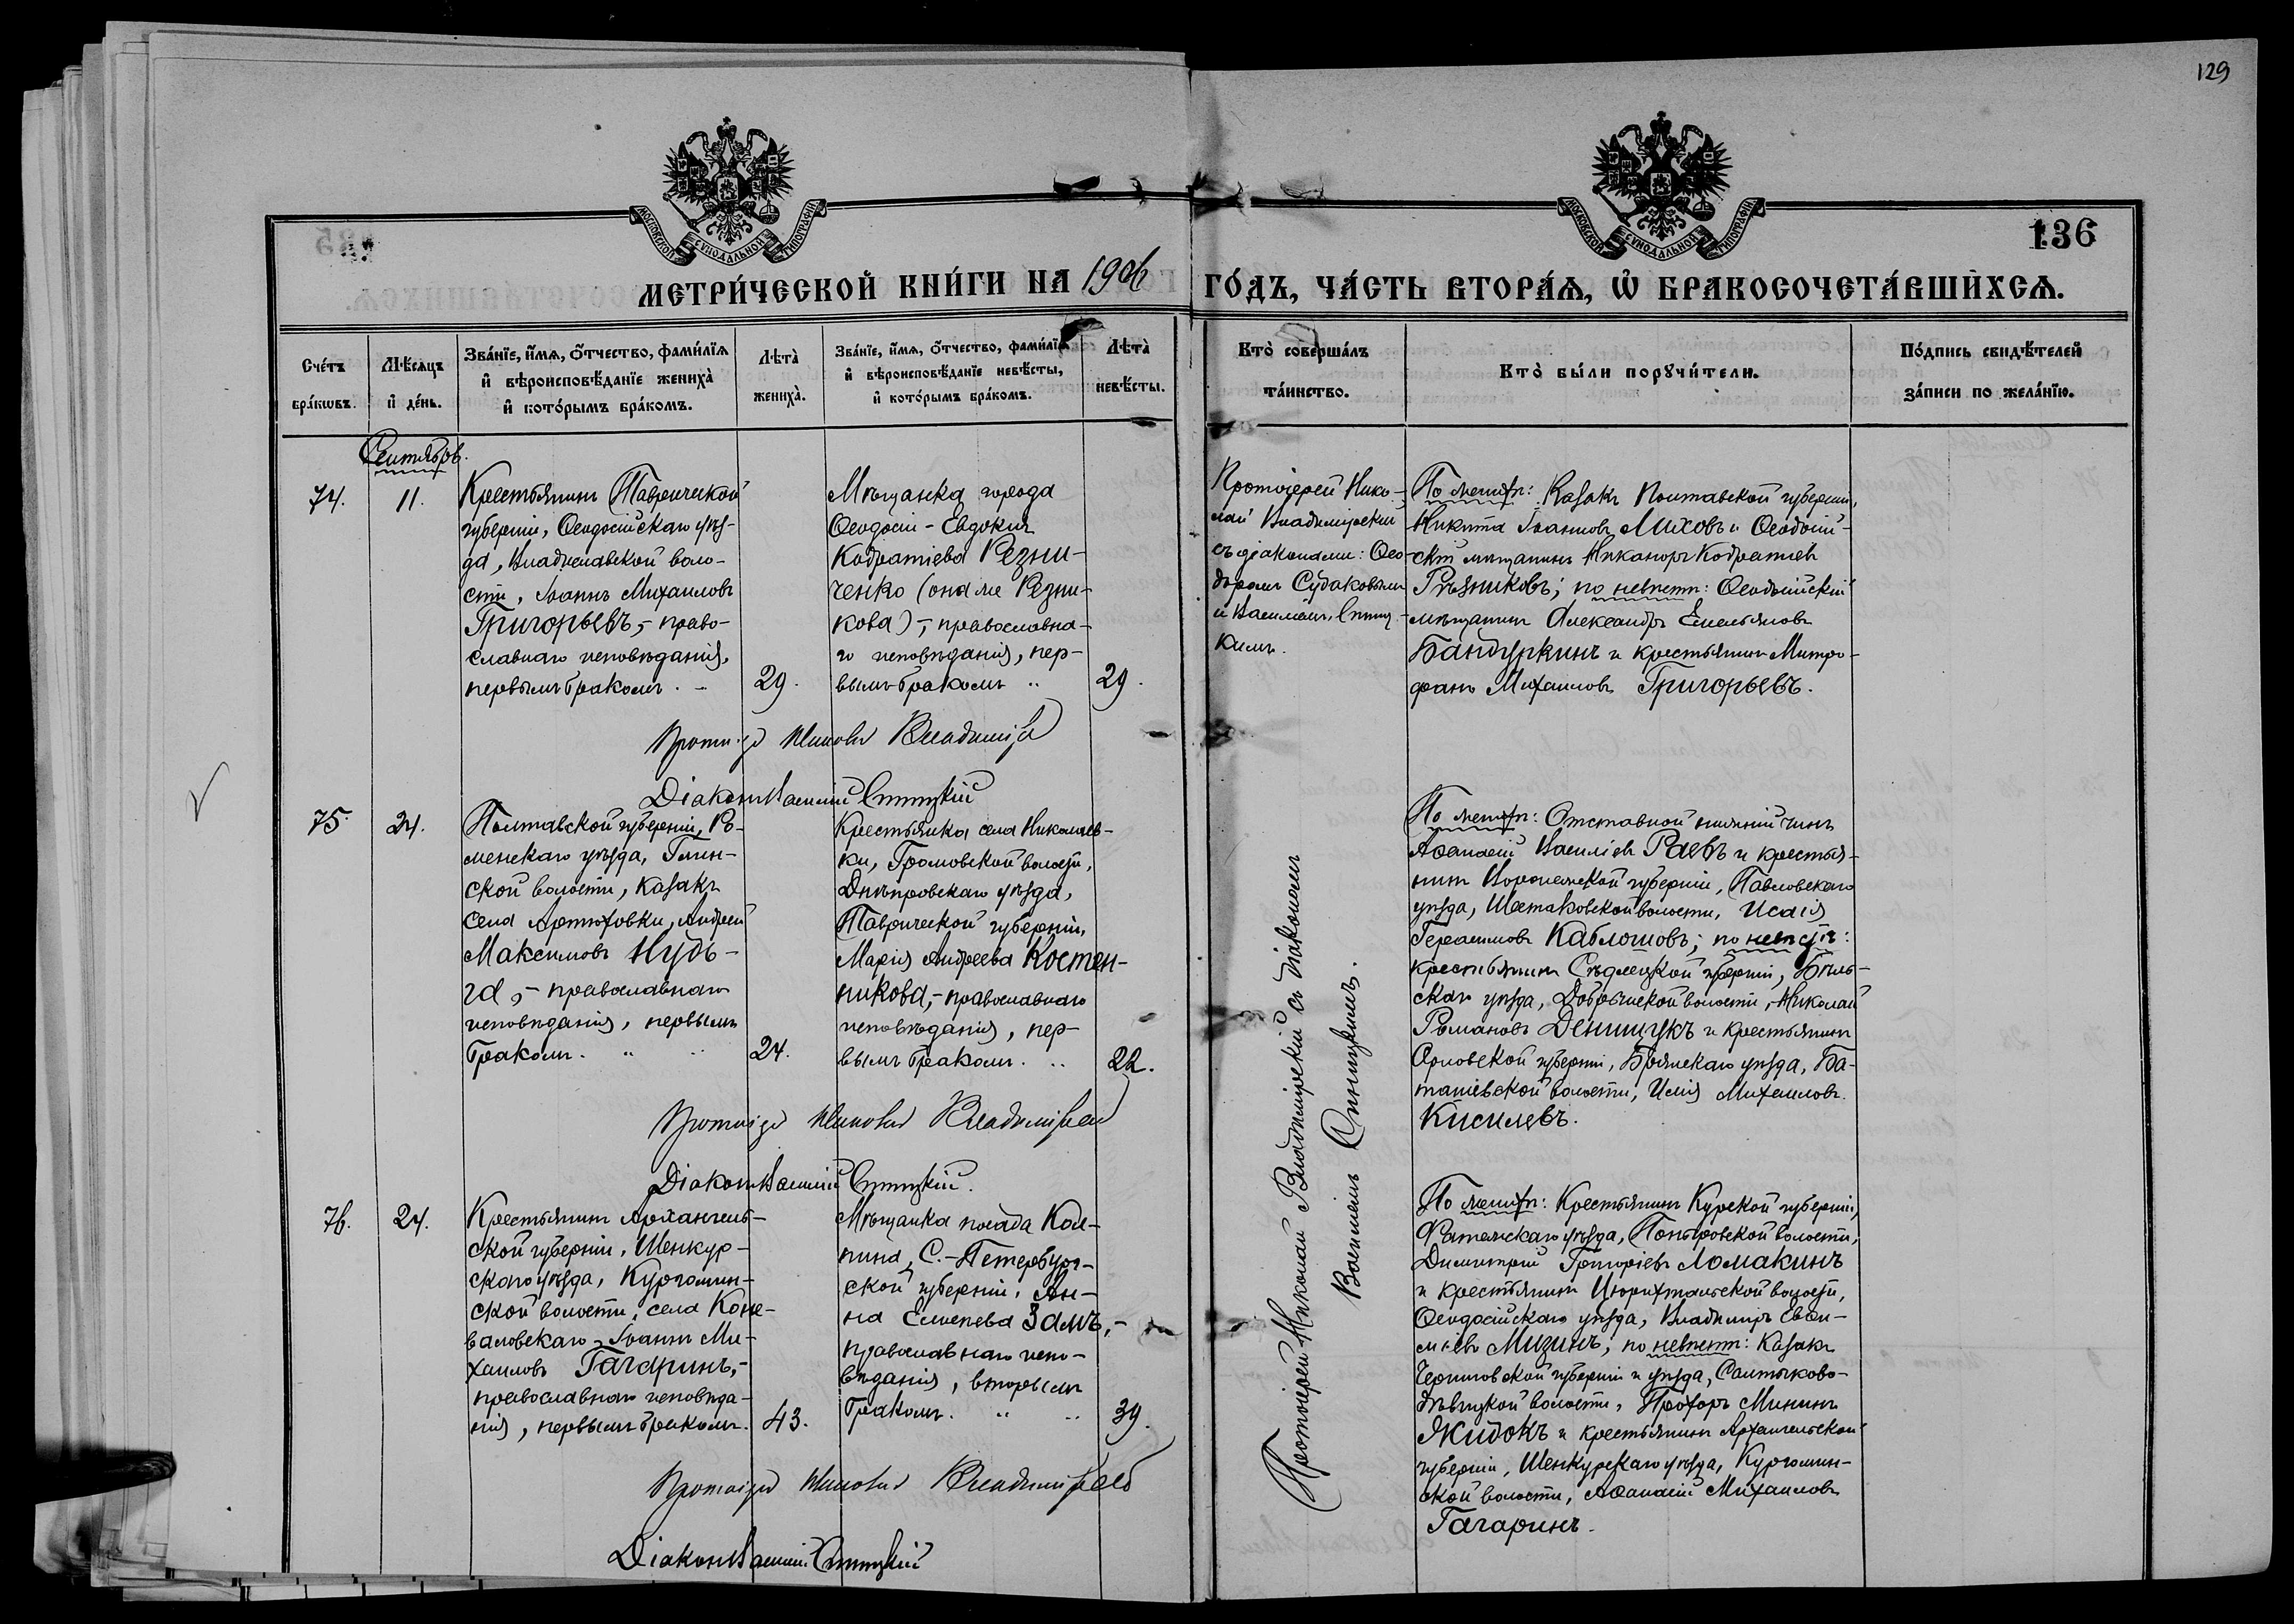 129
136
МОСКОВСКОЙ СѴНОДАЛЬНОЙ ТИПОГРАФІИ
МОСКОВСКОЙ СѴНОДАЛЬНОЙ ТИПОГРАФІИ
МЕТРИ́ЧЕСКОЙ КНИ́ГИ НА 1906 ГО́ДЪ, ЧА́СТЬ ВТОРА́Я, Ѽ БРАКОСОЧЕТА́ВШИХСѦ.
Сче́тъ бра́кѡвъ.
Мѣ́сѧцъ и҆ де́нь.
Зва́нїе, и҆́мѧ, ѻ҆́тчество, фами́лїѧ и҆ вѣроисповѣ́данїе жениха̀ и҆ кото́рымъ бра́комъ.
Лѣта̀ жениха̀.
Зва́нїе, и҆́мѧ, ѻ҆́тчество, фами́лїѧ и҆ вѣроисповѣ́данїе невѣ́сты, и҆ кото́рымъ бра́комъ.
Лѣта̀ невѣ́сты.
Кто̀ соверша́лъ та́инство.
Кто̀ бы́ли порꙋчи́тели.
По́дпись свидѣ́телей за́писи по жела́нїю.
Сентябрь.
74.
11.
Крестьянинъ Таврической
губерніи, Ѳеодосійскаго уѣз-
да, Владиславской воло-
сти, Іоаннъ Михаиловъ
Григорьевъ,- право-
славнаго исповѣданія,
первымъ бракомъ.
29.
Мѣщанка города
Ѳеодосіи - Евдокія
Кодратіева Резни-
ченко (она же Резни-
кова),- православна-
го исповѣданія, пер-
вымъ бракомъ
29.
Протоіерей Нико-
лай Владимірскій
съ діаконами: Ѳео-
доромъ Судаковымъ
и Василіемъ Спиц-
кимъ.
По женихѣ: Казакъ Полтавской губерніи,
Никита Іоанновъ Миховъ и Ѳеодосій-
скій мѣщанинъ Никаноръ Кодратіевъ
Рѣзниковъ; по невѣстѣ: Ѳеодосійскій
мѣщанинъ Александръ Емельяновъ
Бандуркинъ и крестьянинъ Митро-
фанъ Михаиловъ Григорьевъ.
Протоіерей Николай Владимірскій
Діаконъ Василій Спицкій
75.
24.
Полтавской губерніи, Ро-
менскаго уѣзда, Глин-
ской волости, казакъ
села Артюховки, Андрей
Максимовъ Нудь-
га,- православнаго
исповѣданія, первымъ
бракомъ.
24.
Крестьянка села Николаев-
ки, Громовской волости,
Днѣпровскаго уѣзда,
Таврической губерніи,
Марія Андреева Костен-
никова,- православнаго
исповѣданія, пер-
вымъ бракомъ.
22.
По женихѣ: Отставной нижній чинъ
Аѳанасій Василіевъ Раевъ и крестья-
нинъ Воронежской губерніи, Павловскаго
уѣзда, Шестаковской волости, Исаія
Герасимовъ Каблошовъ; по невѣстѣ:
крестьянинъ Сѣдлецкой губерніи, Бѣль-
скаго уѣзда, Добрынской волости, Николай
Романовъ Денищукъ и крестьянинъ
Орловской губерніи, Брянскаго уѣзда, Ба-
ташевской волости, Илія Михаиловъ
Кисилевъ.
Протоіерей Николай Владимірскій
Діаконъ Василій Спицкій.
76.
24.
Крестьянинъ Архангель-
ской губерніи, Шенкур-
скаго уѣзда, Кургомин-
ской волости, села Коне-
валовскаго, Іоаннъ Ми-
хаиловъ Гагаринъ,-
православнаго исповѣда-
нія, первымъ бракомъ.
43.
Мѣщанка посада Кол-
пина, С.-Петербург-
ской губерніи, Ан-
на Замъ,-
православнаго испо-
вѣданія, вторымъ
бракомъ.
39.
Протоіерей Николай Владимірскій съ діакономъ
Василіемъ Спицкимъ.
По женихѣ: Крестьянинъ Курской губерніи,
Фатежскаго уѣзда, Поныровской волости,
Димитрій Григоріевъ Ломакинъ
и крестьянинъ Цюрихтальской волости,
Ѳеодосійскаго уѣзда, Владиміръ Евѳи-
міевъ Мизинъ; по невѣстѣ: казакъ
Черниговской губерніи и уѣзда, Салтыково-
Дѣвицкой волости, Прохоръ Мининъ
Жидокъ и крестьянинъ Архангельской
губерніи, Шенкурскаго уѣзда, Кургомин-
ской волости, Аѳанасій Михаиловъ
Гагаринъ.
Протоіерей Николай Владимірскій
Діаконъ Василій Спицкій